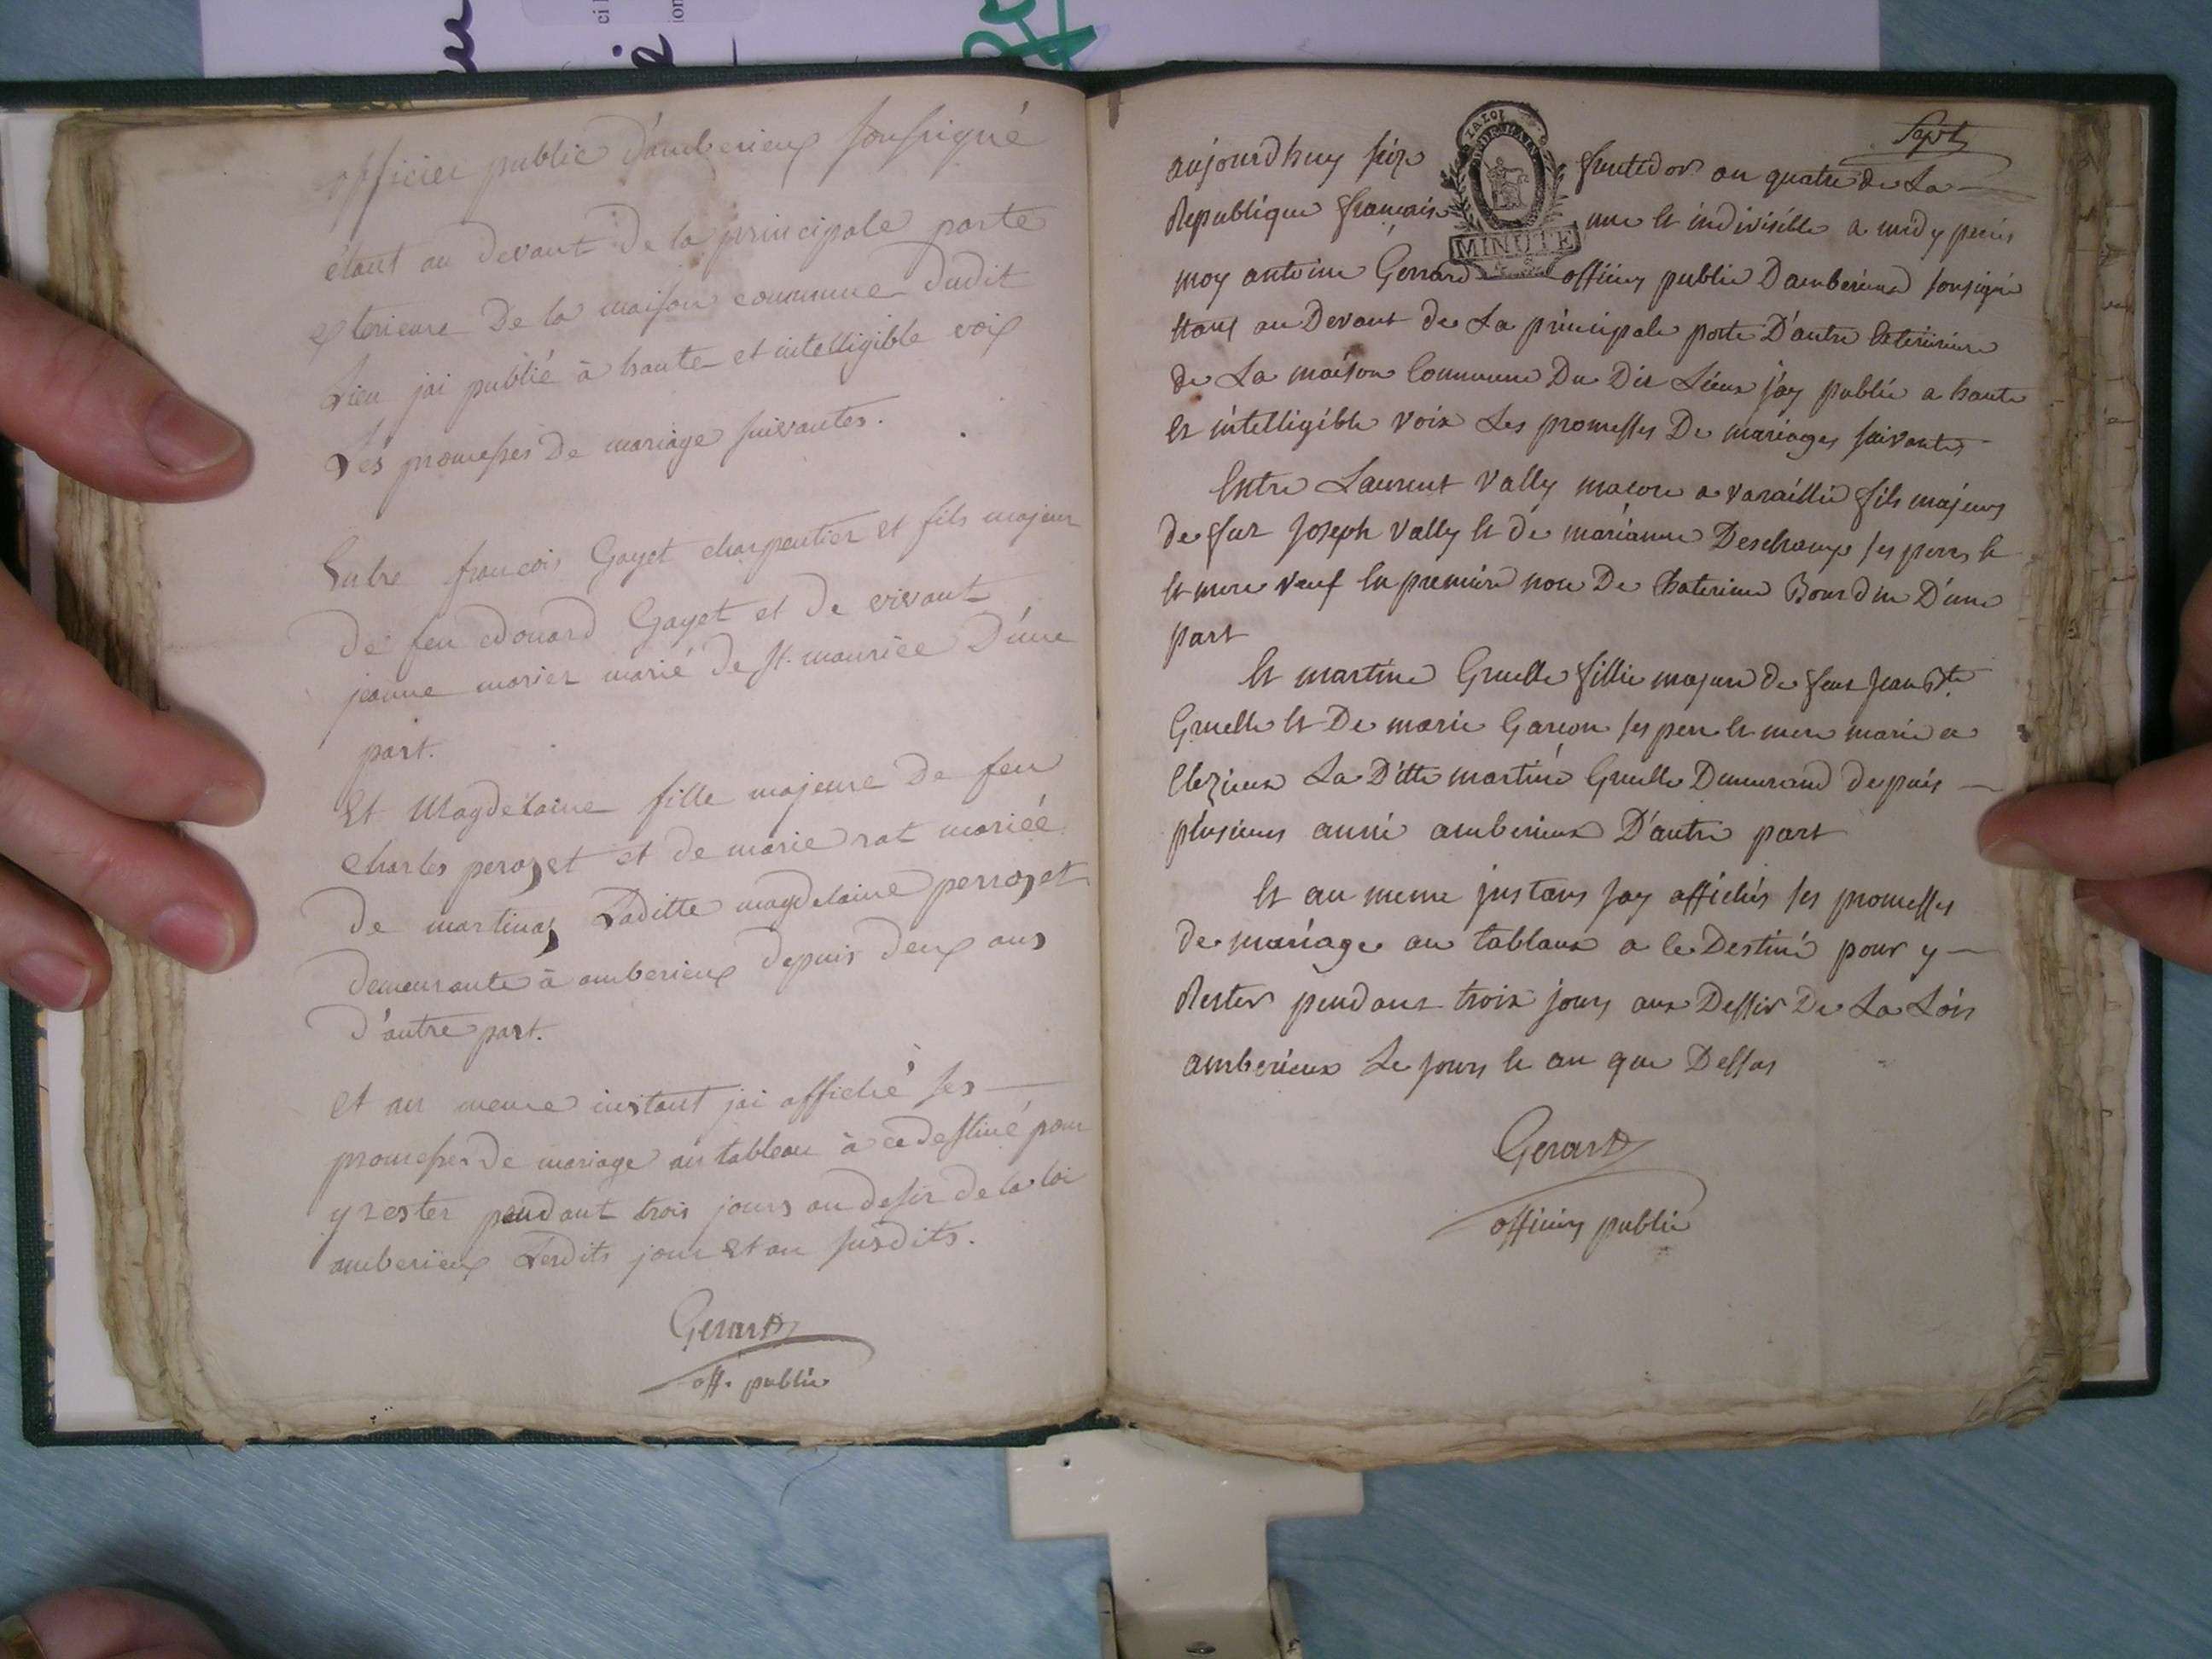 officier public d'amberieux soussigné
étant au devant de la principale porte
exterieure De la maison commune dudit
Lieu jai publié à haute et intelligible voix
Les promesses De mariage suivantes.
Entre francois Gayet charpentier et fils majeur
De feu edouard Gayet et De vivant
jeanne morier marié de St. maurice D'une
part.
Et Magdelaine fille majeure De feu
Charles perozet et de marie rat mariéé
De martinas Laditte magdelaine perrozet
demeurante à amberieux depuis deux ans
D'autre part.
et au meme instant jai affiché ses
promesses De mariage au tableau à ce destiné pour
y rester pendant trois jours au desir de la loi
amberieux Lesdits jour et an susdits.
Gerard
off. public
Sept
aujourdhuy seize fructidor an quatre de La
Republique francaise une et indivisible a midy pecis
LA LOI
MINUTE
moy antoine Gerrard officiers public D'amberieux sousigné
Etant au Devant de La principale porte D'autre Exterieure
de La maison Commune Du Dit Lieux j'ay publié a haute
Et intelligible voix Les promesses De mariages suivantes
Entre Laurent Vally macon a varaillie fils majeurs
de feux Joseph Vally Et de marianne Deschamps ses peres Et
Et mere veuf En premiere noce De Chaterine Bourdin D'une
part
Et martine Gruelle fillie majure de feux Jean Bte
Gruelle Et De marie Garcon ses pere Et mere marie a
Elezieux La Ditte martine Gruelle Demeurand depuis
plusieurs anné amberieux D'autre part
Et au meme justans Jay affichés ses promesses
De mariage au tableaux a Ce Destiné pour y
Rester pendant trois jours aux Dessir De La Lois
amberieux Le jours Et an que Dessus
Gerard
officiers public